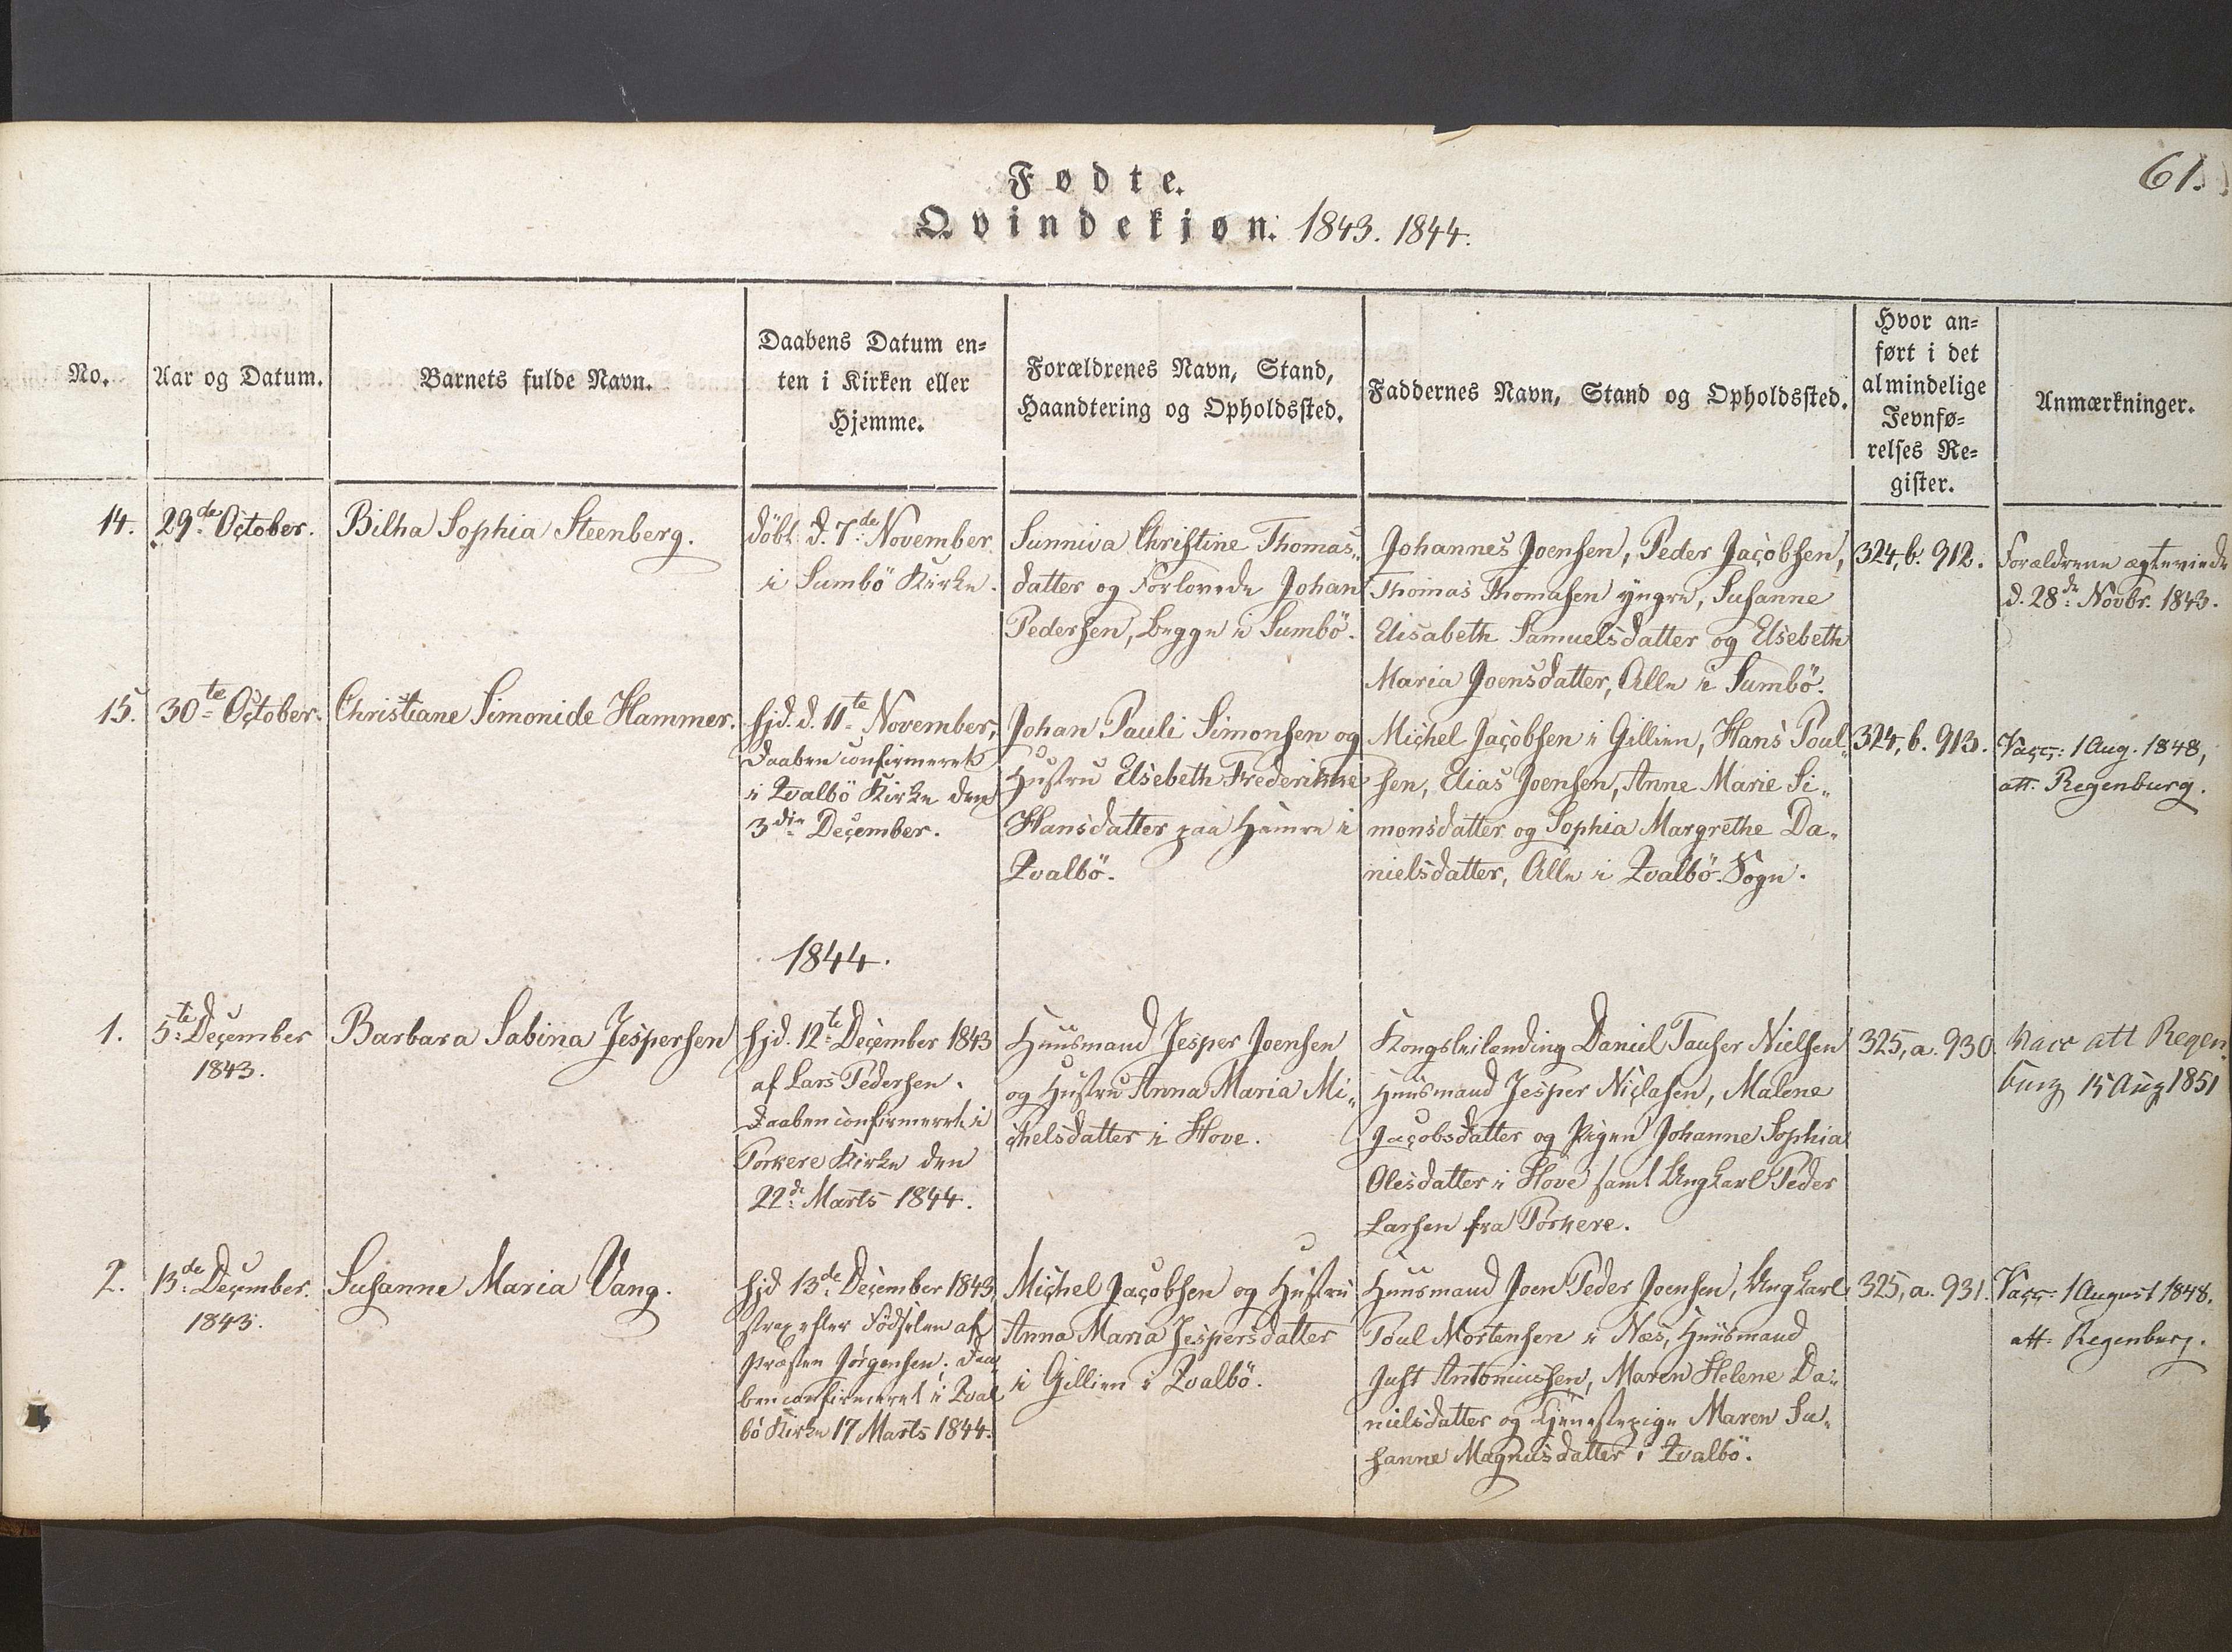 61.
Fødte.
Qvindekjøn. 1843. 1844.
No.
Aar og Datum.
Barnets fulde Navn.
Daabens Datum en=
ten i Kirken eller
Hjemme.
Forældrenes Navn, Stand,
Haandtering og Opholdssted.
Faddernes Navn, Stand og Opholdssted.
Hvor an=
ført i det
almindelige
Jevnfø=
relses Re=
gister.
Anmærkninger.
14.
29de October.
Bilha Sophia Steenberg.
döbt d. 7de November
i Sumbö Kirke.
Sunniva Christine Thomas„
datter og Forlovede Johan
Pedersen, begge i Sumbö.
Johannes Joensen, Peder Jacobsen,
Thomas Thomasen yngre, Susanne
Elisabeth Samuelsdatter og Elsebeth
Maria Joensdatter, Alle i Sumbö.
324, b. 912.
Forældrene ægteviede
d. 28de Novbr. 1843.
15.
30te October.
Christiane Simonide Hammer.
hjd. d. 11te November,
Daaben confirmeret
i Qvalbö Kirke den
3die December.
Johan Pauli Simonsen og
Hustru Elsebeth Frederikke
Hansdatter paa Hamre i
Qvalbö.
Michel Jacobsen i Gillien, Hans Poul„
sen, Elias Joensen, Anne Marie Si„
monsdatter og Sophia Margrethe Da„
nielsdatter, Alle i Qvalbö Sogn.
324, b. 913.
Vacc: 1 Aug. 1848,
att. Regenburg.
1844.
1.
5te December
1843.
Barbara Sabina Jespersen
hjd. 12te December 1843
af Lars Pedersen.
Daaben confirmeret i
Porkere Kirke den
22de Marts 1844.
Huusmand Jesper Joensen
og Hustru Anna Maria Mi„
chelsdatter i Hove.
Kongsleilending Daniel Tauser Nielsen
Huusmand Jesper Niclasen, Malene
Jacobsdatter og Pigen Johanne Sophia
Olesdatter i Hove samt Ungkarl Peder
Larsen fra Porkere.
325, a. 930
Vacc att Regen
burg 15 Aug 1851
2.
13de December.
1843.
Susanne Maria Vang.
hjd 13de December 1843,
strax efter Födselen af
Præsten Jörgensen; Daa
ben confirmeret i Qval
bö Kirke 17 Marts 1844.
Michel Jacobsen og Hustru
Anna Maria Jespersdatter
i Gillien i Qvalbö.
Huusmand Joen Peder Joensen, Ungkarl
Poul Mortensen i Nes, Huusmand
Just Antoniussen, Maren Helene Da„
nielsdatter og Tjenestepige Maren Su„
sanne Magnusdatter i Qvalbö.
325, a. 931.
Vacc: 1 August 1848.
att: Regenburg.